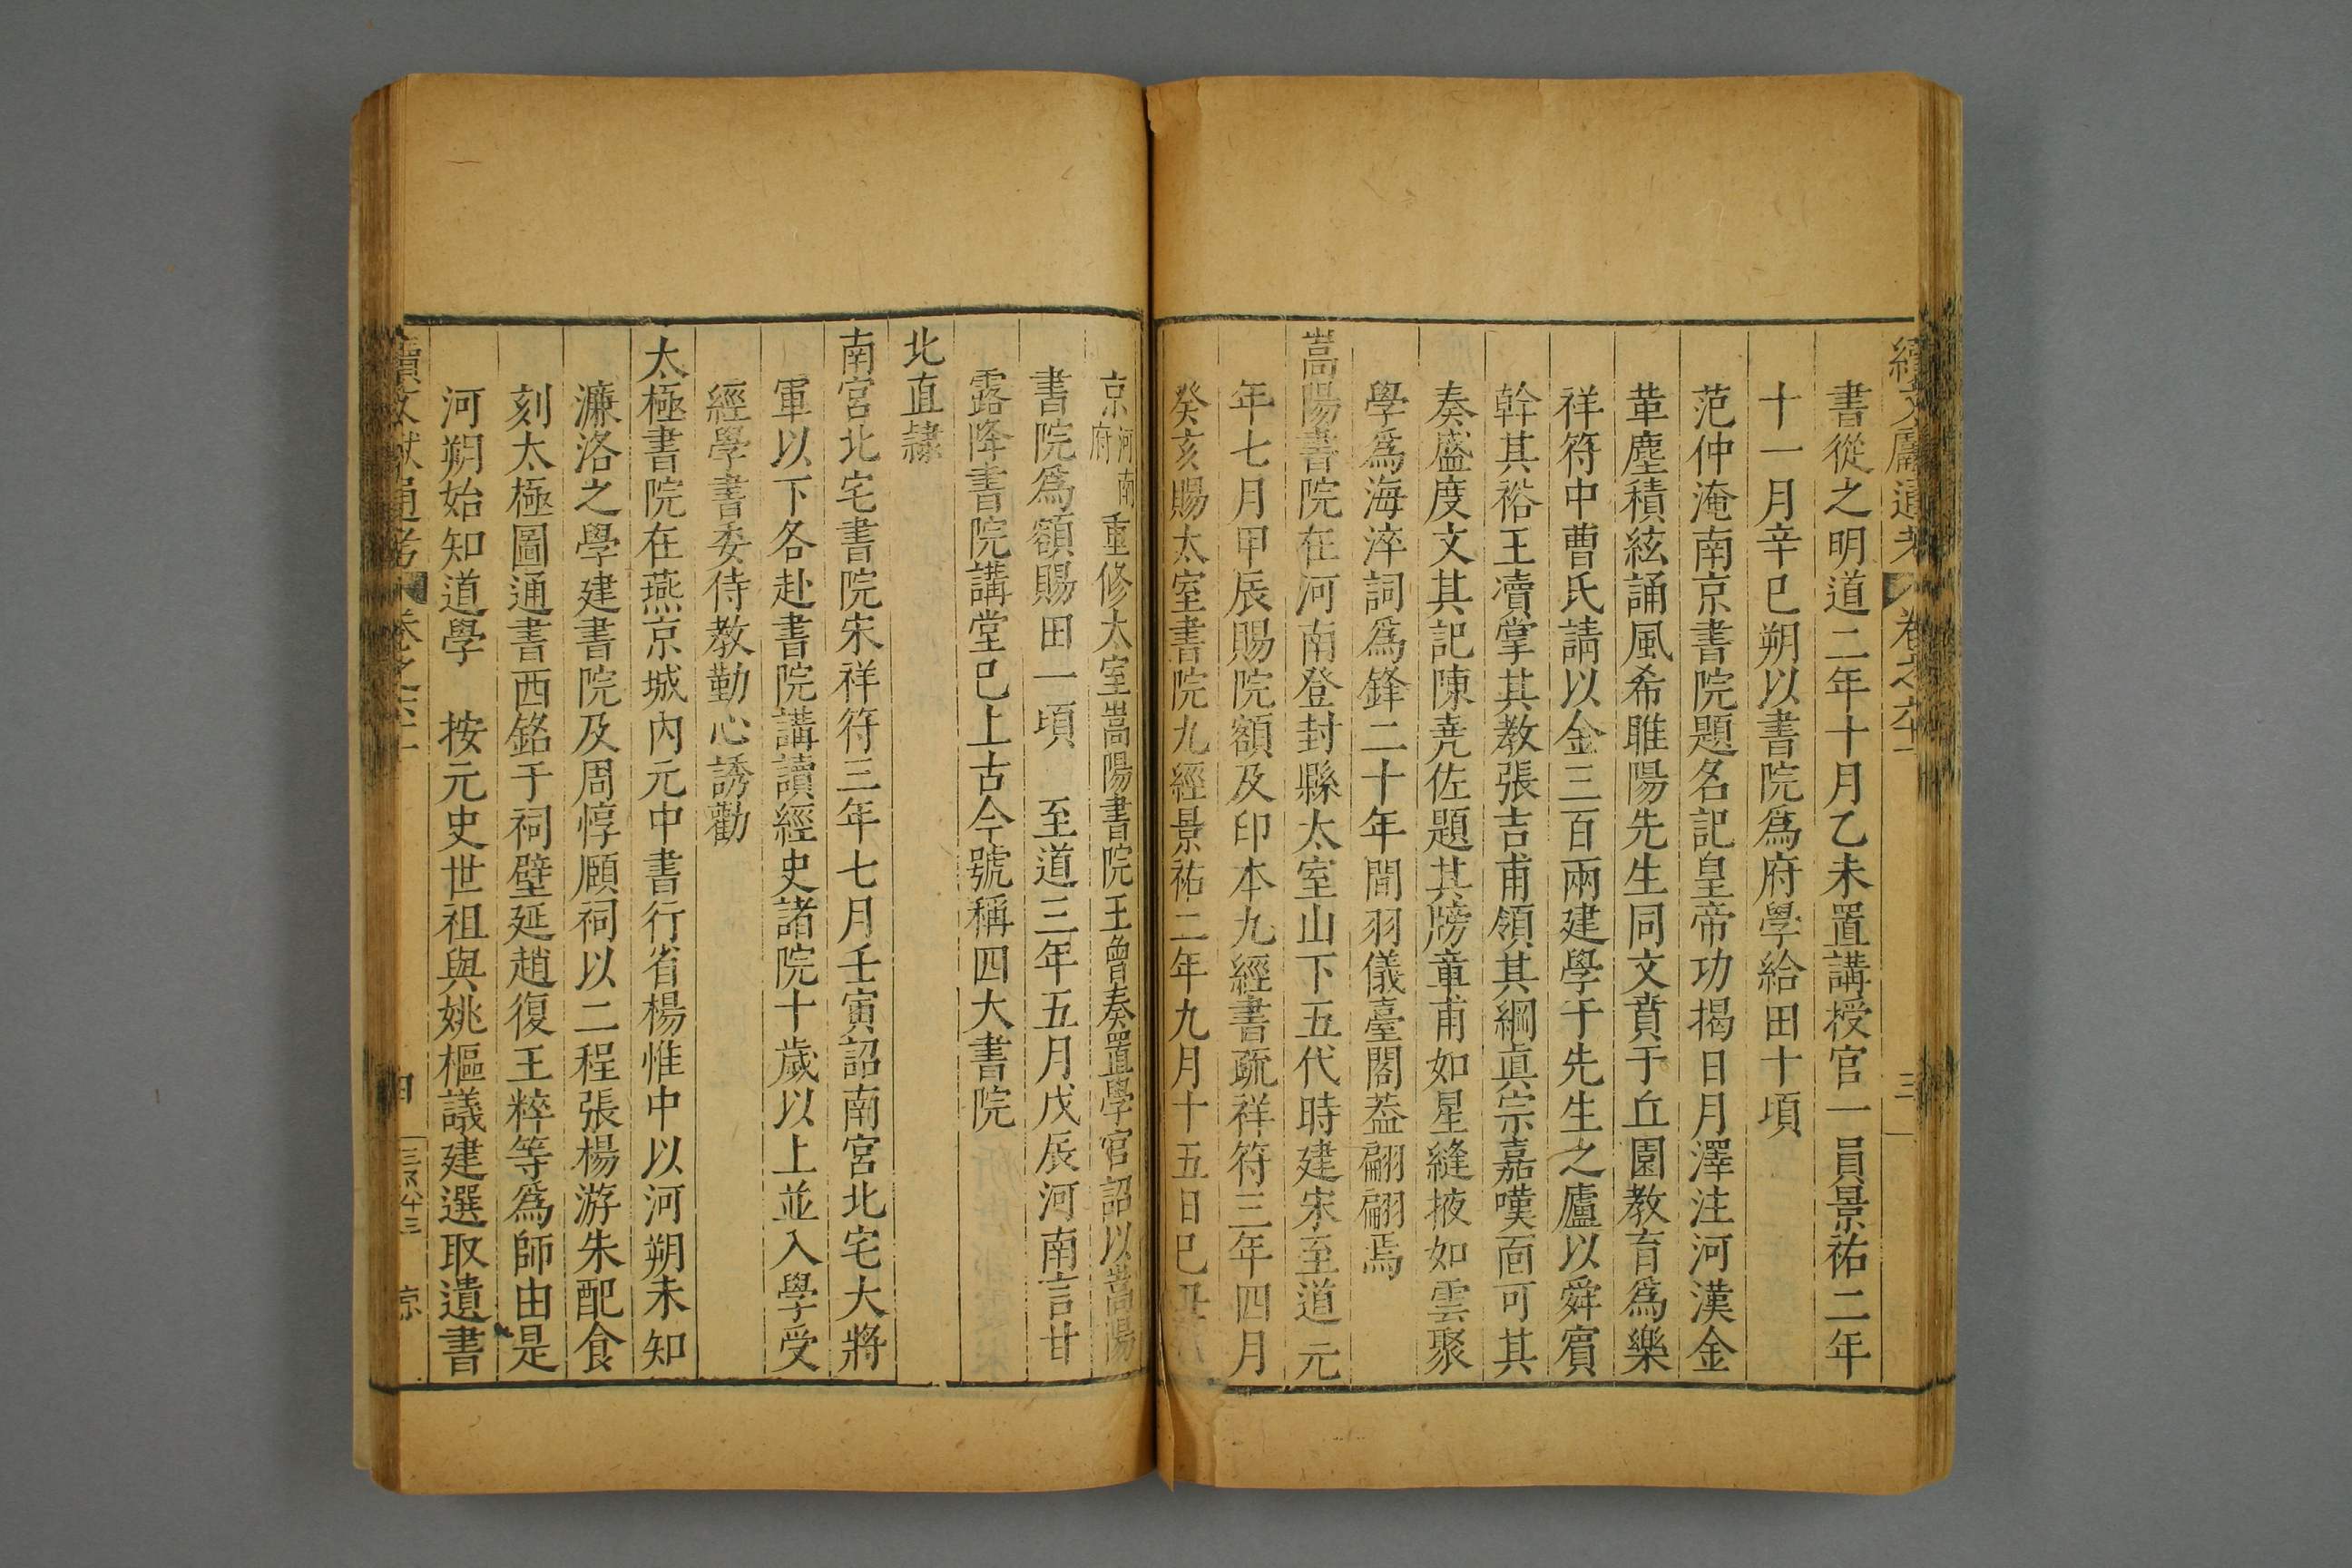 續文獻通考 卷之六十一 三
書從之明道二年十月乙未置講授官一員景祐二年
十一月辛巳朔以書院爲府學給田十頃
范仲淹南京書院題名記皇帝功揭日月澤注河漢金
革塵積絃誦風希睢陽先生同文賁于丘園教育爲樂
祥符中曹氏請以金三百兩建學于先生之廬以舜賓
幹其裕王瀆掌其教張吉甫領其綱眞宗嘉嘆面可其
奏盛度文其記陳堯佐題其牓章甫如星縫掖如雲聚
學爲海淬詞爲鋒二十年間羽儀臺閣葢翩翩焉
嵩陽書院在河南登封縣太室山下五代時建宋至道元
年七月甲辰賜院額及印本九經書疏祥符三年四月
癸亥賜太室書院九經景祐二年九月十五日己丑
京河南府重修太室嵩陽書院王曾奏置學官詔以嵩陽
書院爲額賜田一頃 至道三年五月戊辰河南言甘
露降書院講堂已上古今號稱四大書院
北直隸
南宮北宅書院宋祥符三年七月壬寅詔南宮北宅大將
軍以下各赴書院講讀經史諸院十歲以上並入學受
經學書委侍教勤心誘勸
太極書院在燕京城內元中書行省楊惟中以河朔未知
濂洛之學建書院及周惇頤祠以二程張楊游朱配食
刻太極圖通書西銘于祠壁延趙復王粹等爲師由是
河朔始知道學 按元史世祖與姚樞議建選取遺書
續文獻通考 卷之六十一 四